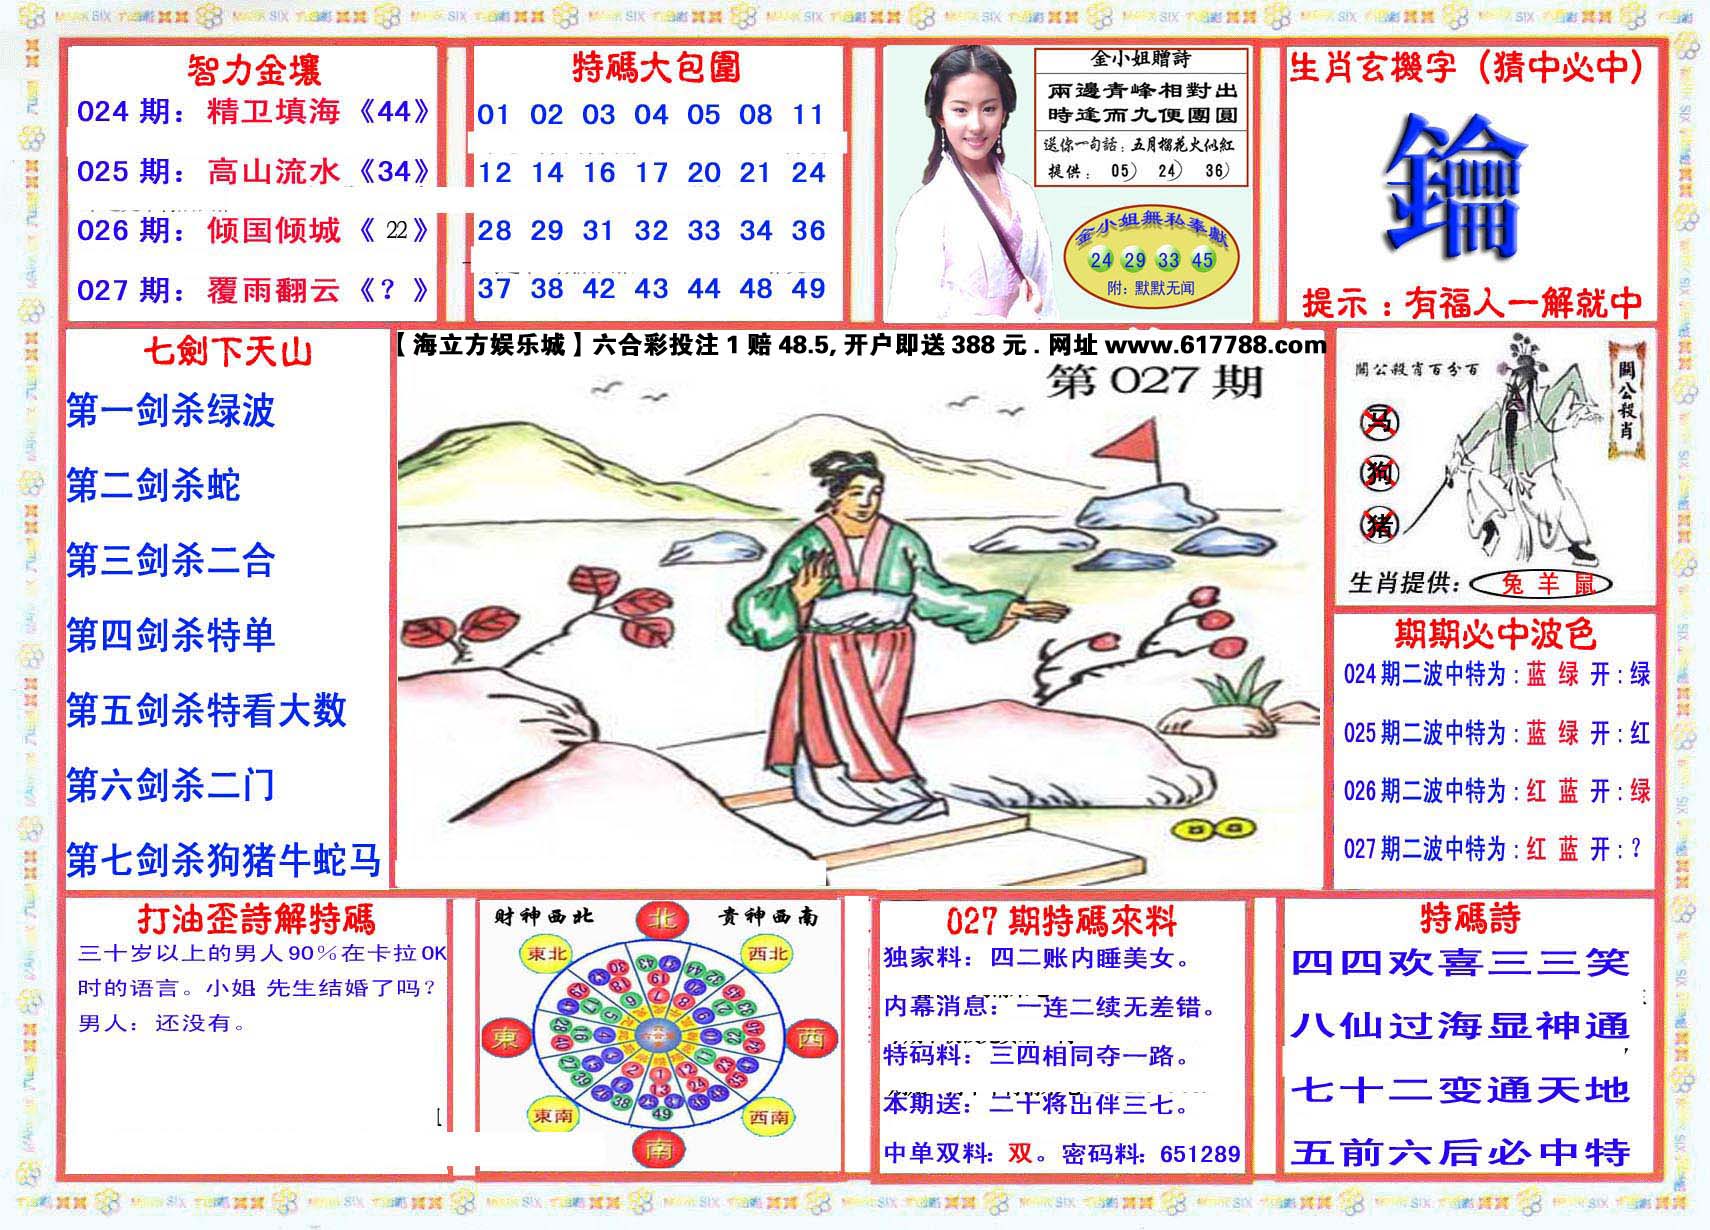 智力金壤
024 期：精卫填海《44》
025 期：高山流水《34》
026 期：倾国倾城《 22 》
027 期：覆雨翻云《？》
特碼大包圍
01 02 03 04 05 08 11
12 14 16 17 20 21 24
28 29 31 32 33 34 36
37 38 42 43 44 48 49
金小姐贈詩
兩邊青峰相對出
時逢而九便團圓
送你一句話：五月榴花火似紅
提供： 05） 24） 36）
金小姐無私奉獻
24 29 33 45
附：默默无闻
生肖玄機字（猜中必中）
鑰
提示：有福人一解就中
七劍下天山
第一剑杀绿波
第二剑杀蛇
第三剑杀二合
第四剑杀特单
第五剑杀特看大数
第六剑杀二门
第七剑杀狗猪牛蛇马
【海立方娱乐城】六合彩投注1赔48.5,开户即送388元.网址www.617788.com
第027期
關公殺肖百分百
關公殺肖
马
狗
猪
生肖提供：兔 羊 鼠
期期必中波色
024期二波中特为：蓝 绿 开：绿
025期二波中特为：蓝 绿 开：红
026期二波中特为：红 蓝 开：绿
027期二波中特为：红 蓝 开：？
打油歪詩解特碼
三十岁以上的男人90%在卡拉OK
时的语言。小姐 先生结婚了吗？
男人：还没有。
財神西北
貴神西南
北
東北
西北
東
西
東南
西南
南
49
027 期特碼來料
独家料：四二账内睡美女。
内幕消息：一连二续无差错。
特码料：三四相同夺一路。
本期送：二十将出伴三七。
中单双料：双。密码料：651289
特碼詩
四四欢喜三三笑
八仙过海显神通
七十二变通天地
五前六后必中特